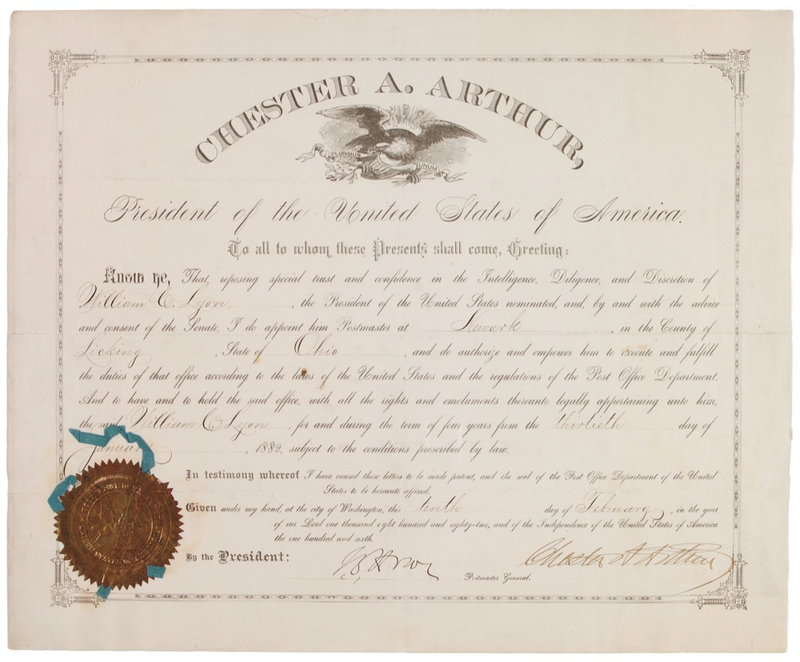 CHESTER A. ARTHUR,
President of the United States of America.
To all to whom these Presents shall come, Greeting:
Know Ye, That, reposing special trust and confidence in the Intelligence, Diligence, and Discretion of
William C. Lyon, the President of the United States nominated, and, by and with the advice
and consent of the Senate, I do appoint him Postmaster at Newark, in the County of
Licking, State of Ohio, and do authorize and empower him to execute and fulfill
the duties of that office according to the laws of the United States and the regulations of the Post Office Department.
And to have and to hold the said office, with all the rights and emoluments thereunto legally appertaining unto him,
the said William C. Lyon, for and during the term of four years from the thirtieth day of
January, 1882, subject to the conditions prescribed by law.
In testimony whereof I have caused these letters to be made patent, and the seal of the Post Office Department of the United
States to be hereunto affixed.
Given under my hand, at the city of Washington, this tenth day of February, in the year
of our Lord one thousand eight hundred and eighty-two, and of the Independence of the United States of America
the one hundred and sixth.
By the President:
Chester A Arthur
Postmaster General.